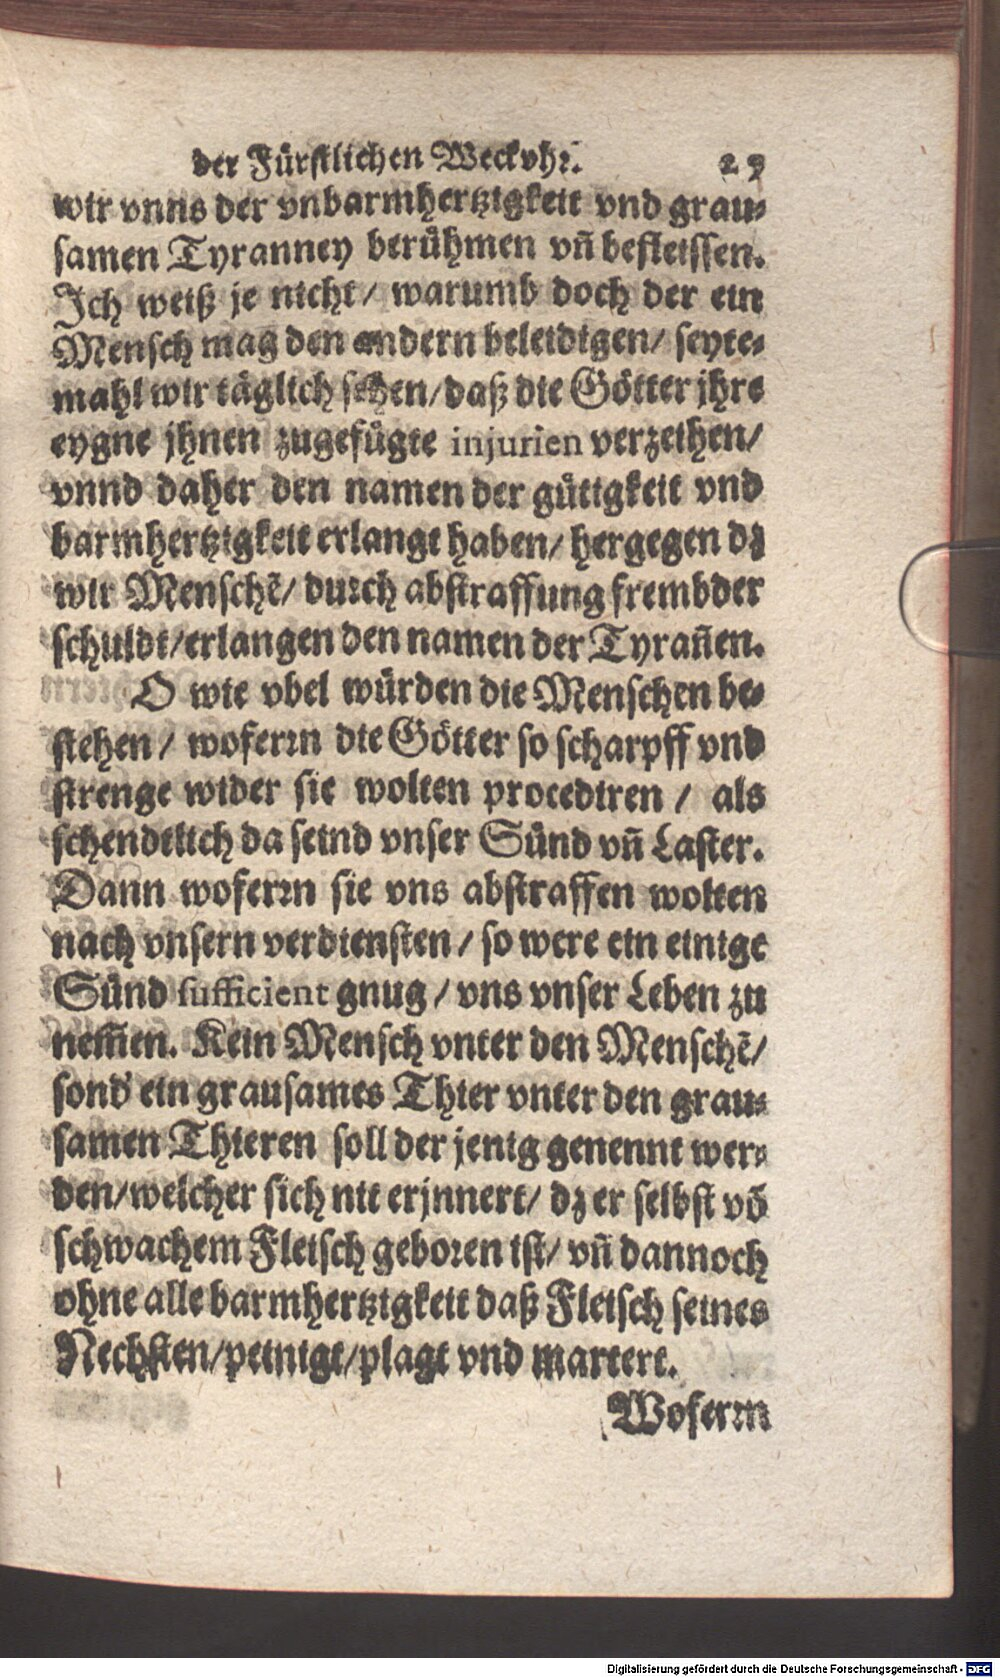 der Fürstlichen Weckvhr. 29
wir vnns der vnbarmhertzigkeit vnd grau-
samen Tyranney berühmen vñ befleissen.
Ich weiß je nicht / warumb doch der ein
Mensch mag den andern beleidigen / seyte-
mahl wir täglich sehen / daß die Götter jhre
eygne jhnen zugefügte injurien verzeihen /
vnnd daher den namen der gütigkeit vnd
barmhertzigkeit erlangt haben / hergegen dz
wir Menschẽ / durch abstraffung frembder
schuldt / erlangen den namen der Tyrañen.
O wie vbel würden die Menschen be-
stehen / woferrn die Götter so scharpff vnd
strenge wider sie wolten procediren / als
schendtlich da seind vnser Sünd vñ Laster.
Dann woferrn sie vns abstraffen wolten
nach vnsern verdiensten / so were ein einige
Sünd sufficient gnug / vns vnser Leben zu
nem̃en. Kein Mensch vnter den Menschẽ /
sond' ein grausames Thier vnter den grau-
samen Thieren soll der jenig genennt wer-
den / welcher sich nit erjnnert / dz er selbst võ
schwachem Fleisch geboren ist / vñ dannoch
ohne alle barmhertzigkeit daß Fleisch seines
Nechsten / peinigt / plagt vnd martert.
Woferrn
Digitalisierung gefördert durch die Deutsche Forschungsgemeinschaft - DFG